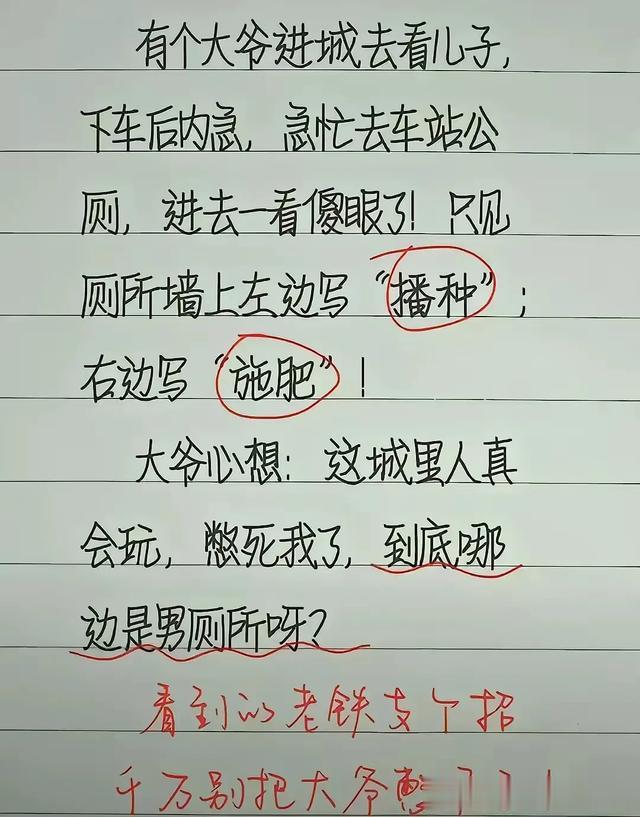 有个大爷进城去看儿子,
下车后内急, 急忙去车站公
厕, 进去一看傻眼了! 只见
厕所墙上左边写“播种”;
右边写“施肥”!
大爷心想: 这城里人真
会玩, 憋死我了, 到底哪
边是男厕所呀?
看到的老铁支个招
千万别把大爷憋